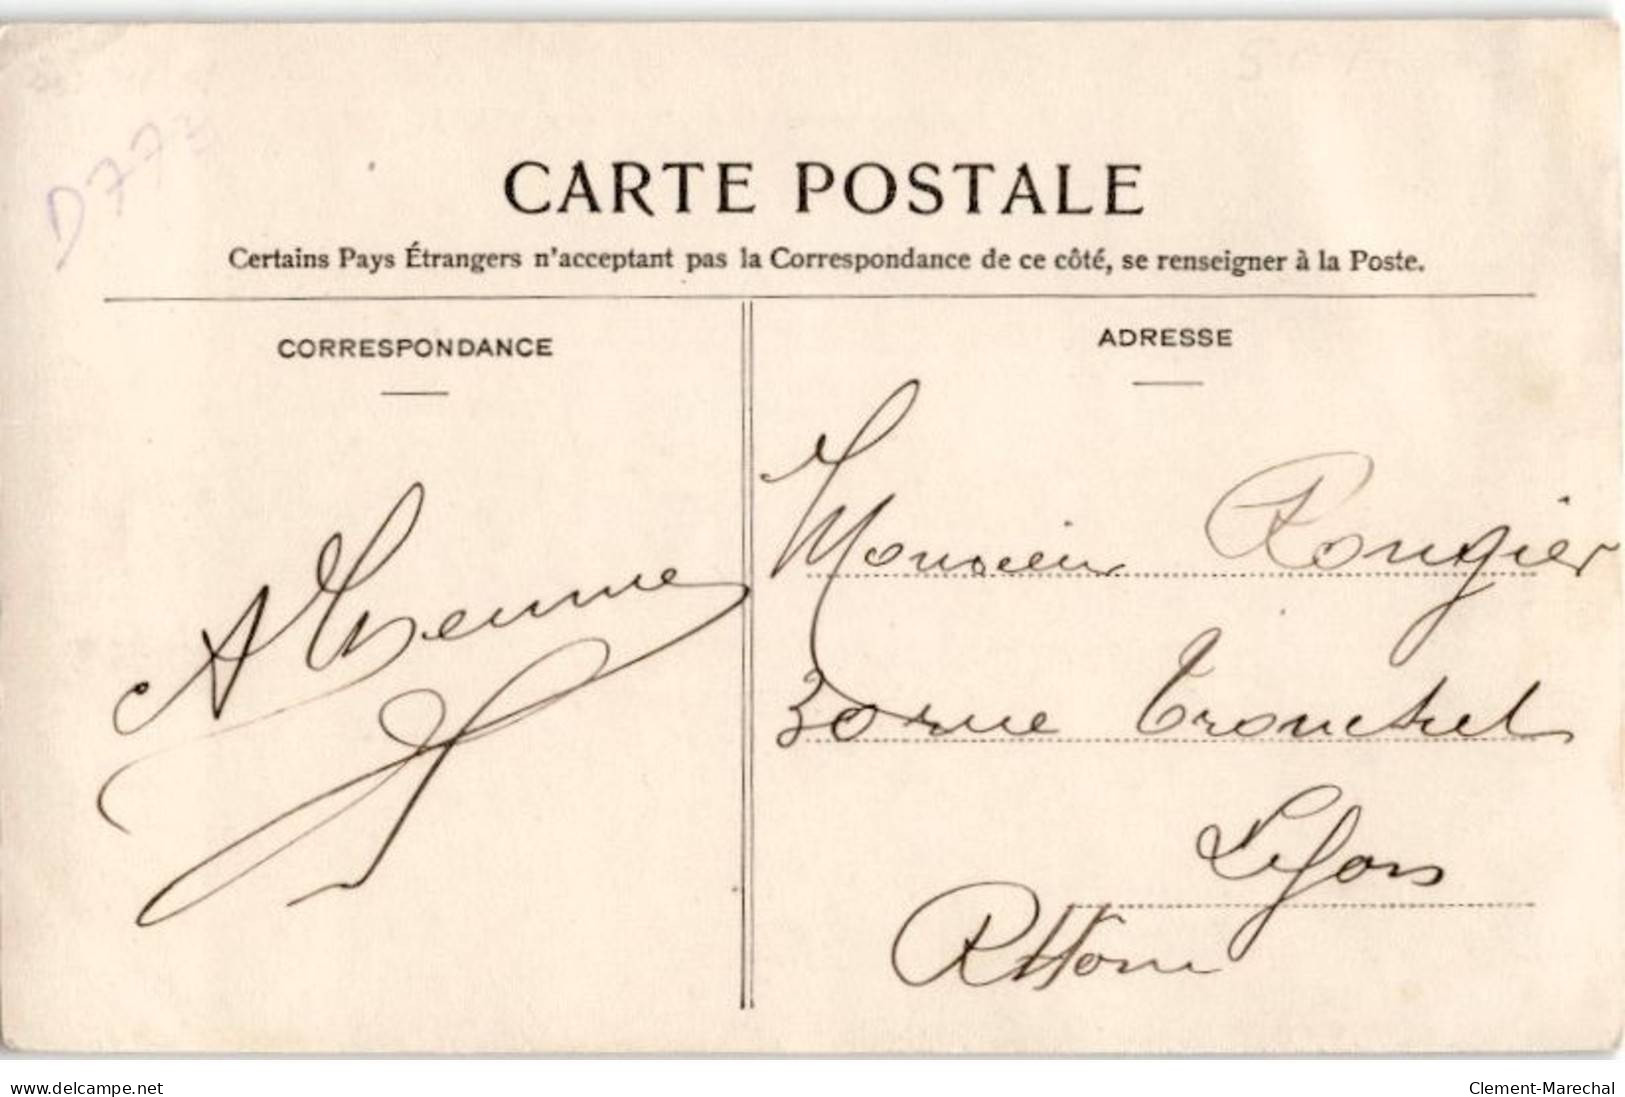 D773
CARTE POSTALE
Certains Pays Étrangers n'acceptant pas la Correspondance de ce côté, se renseigner à la Poste.
CORRESPONDANCE
ADRESSE
Monsieur Rougier
30 rue Tronchet
Lyon
Rhone
www.delcampe.net
Clement-Marechal